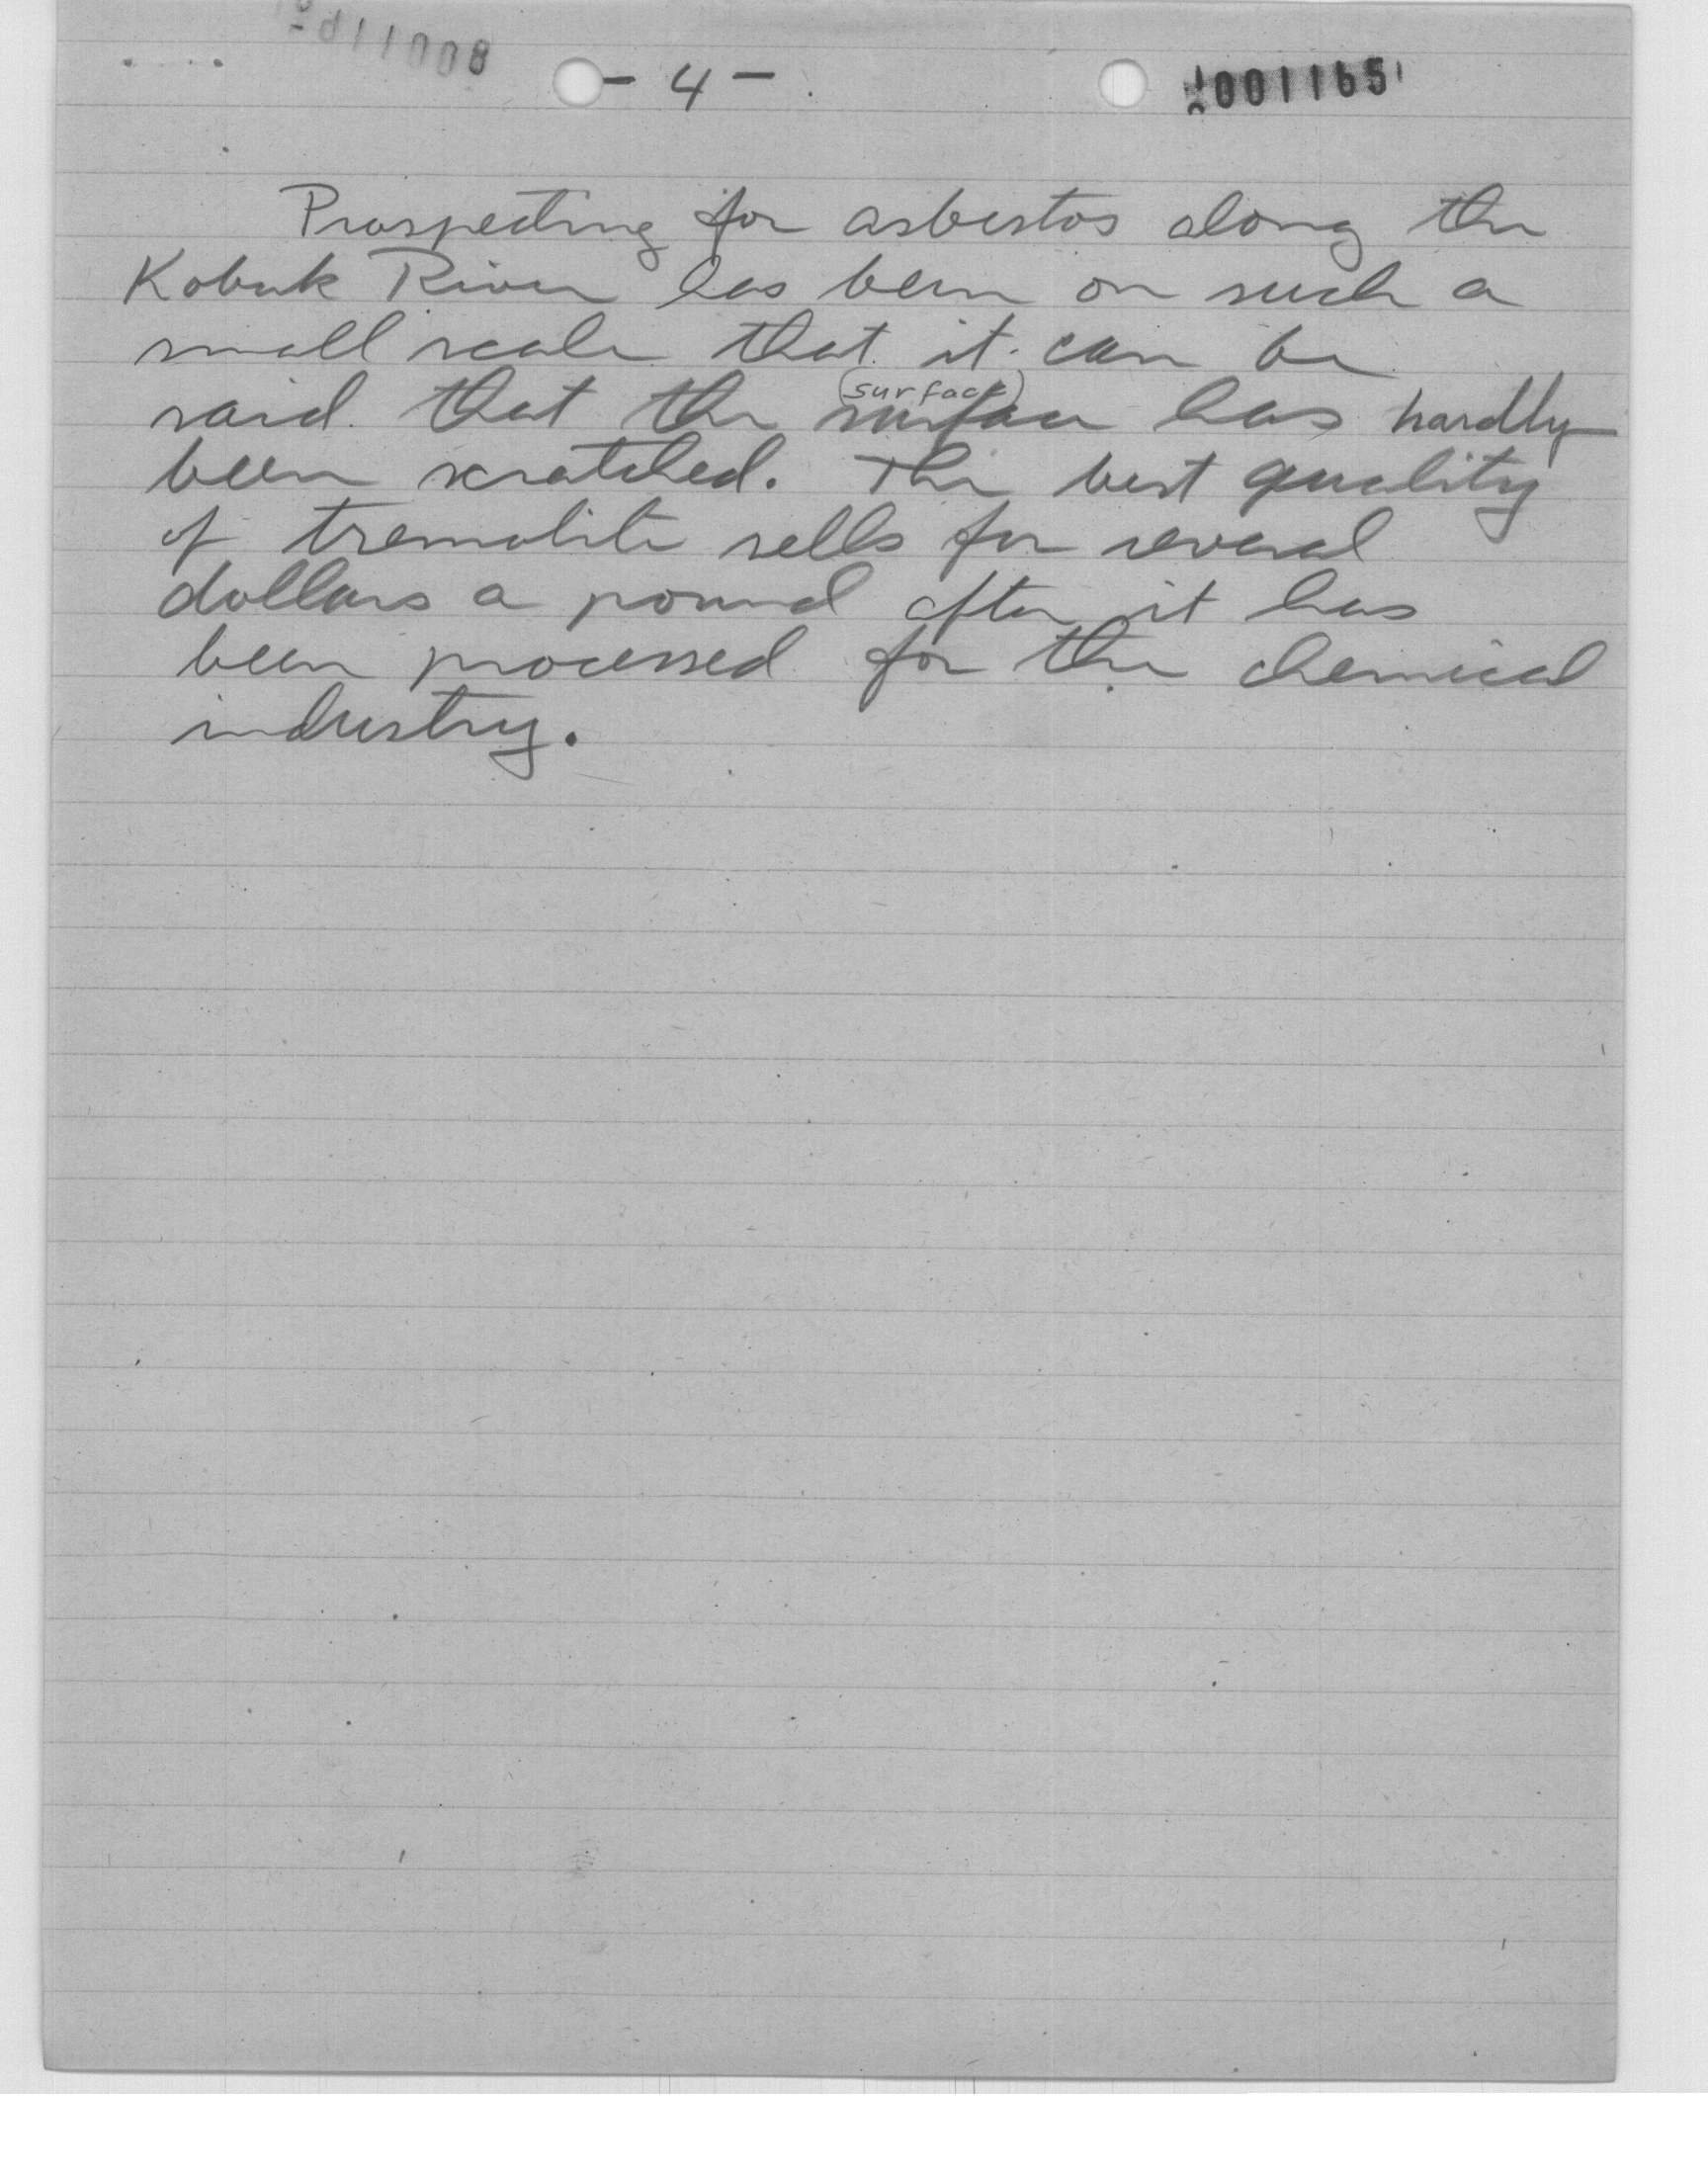 - 4 -
0011651
Prospecting for asbestos along the
Kobuk River has been on such a
small scale that it can be
(surface)
said that the surface has hardly
been scratched. The best quality
of tremolite sells for several
dollars a pound after it has
been processed for the chemical
industry.